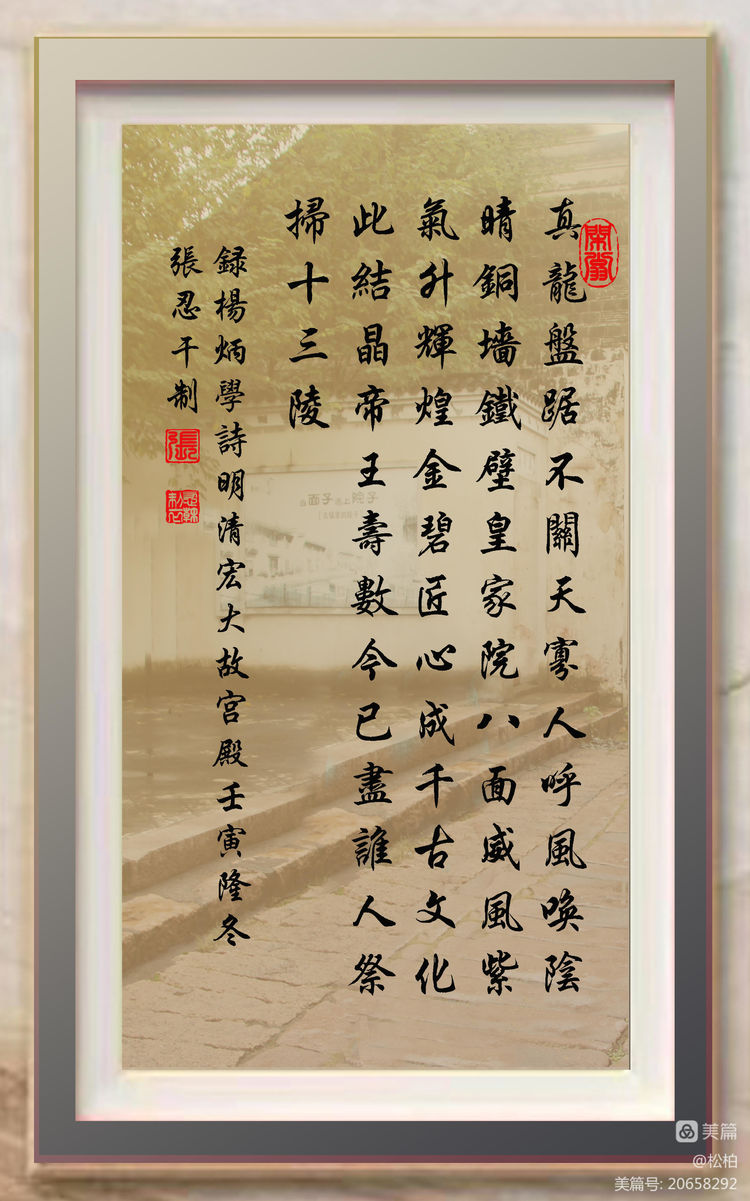 真龍盤踞不關天寡人呼風喚陰
晴銅墻鐵壁皇家院八面威風紫
氣升輝煌金碧匠心成千古文化
此結晶帝王壽數今已盡誰人祭
掃十三陵
録楊炳學詩明清宏大故宮殿壬寅隆冬
張忍干制
張
面子
院子
美篇
@松柏
美篇号: 20658292